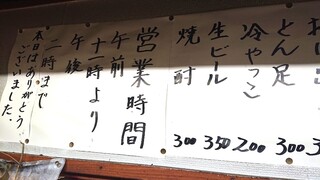 とん足 300
冷やっこ 200
生ビール 350
焼酎 300
営業時間
午前
十一時より
午後
二時まで
本日はありがとう
ございました。